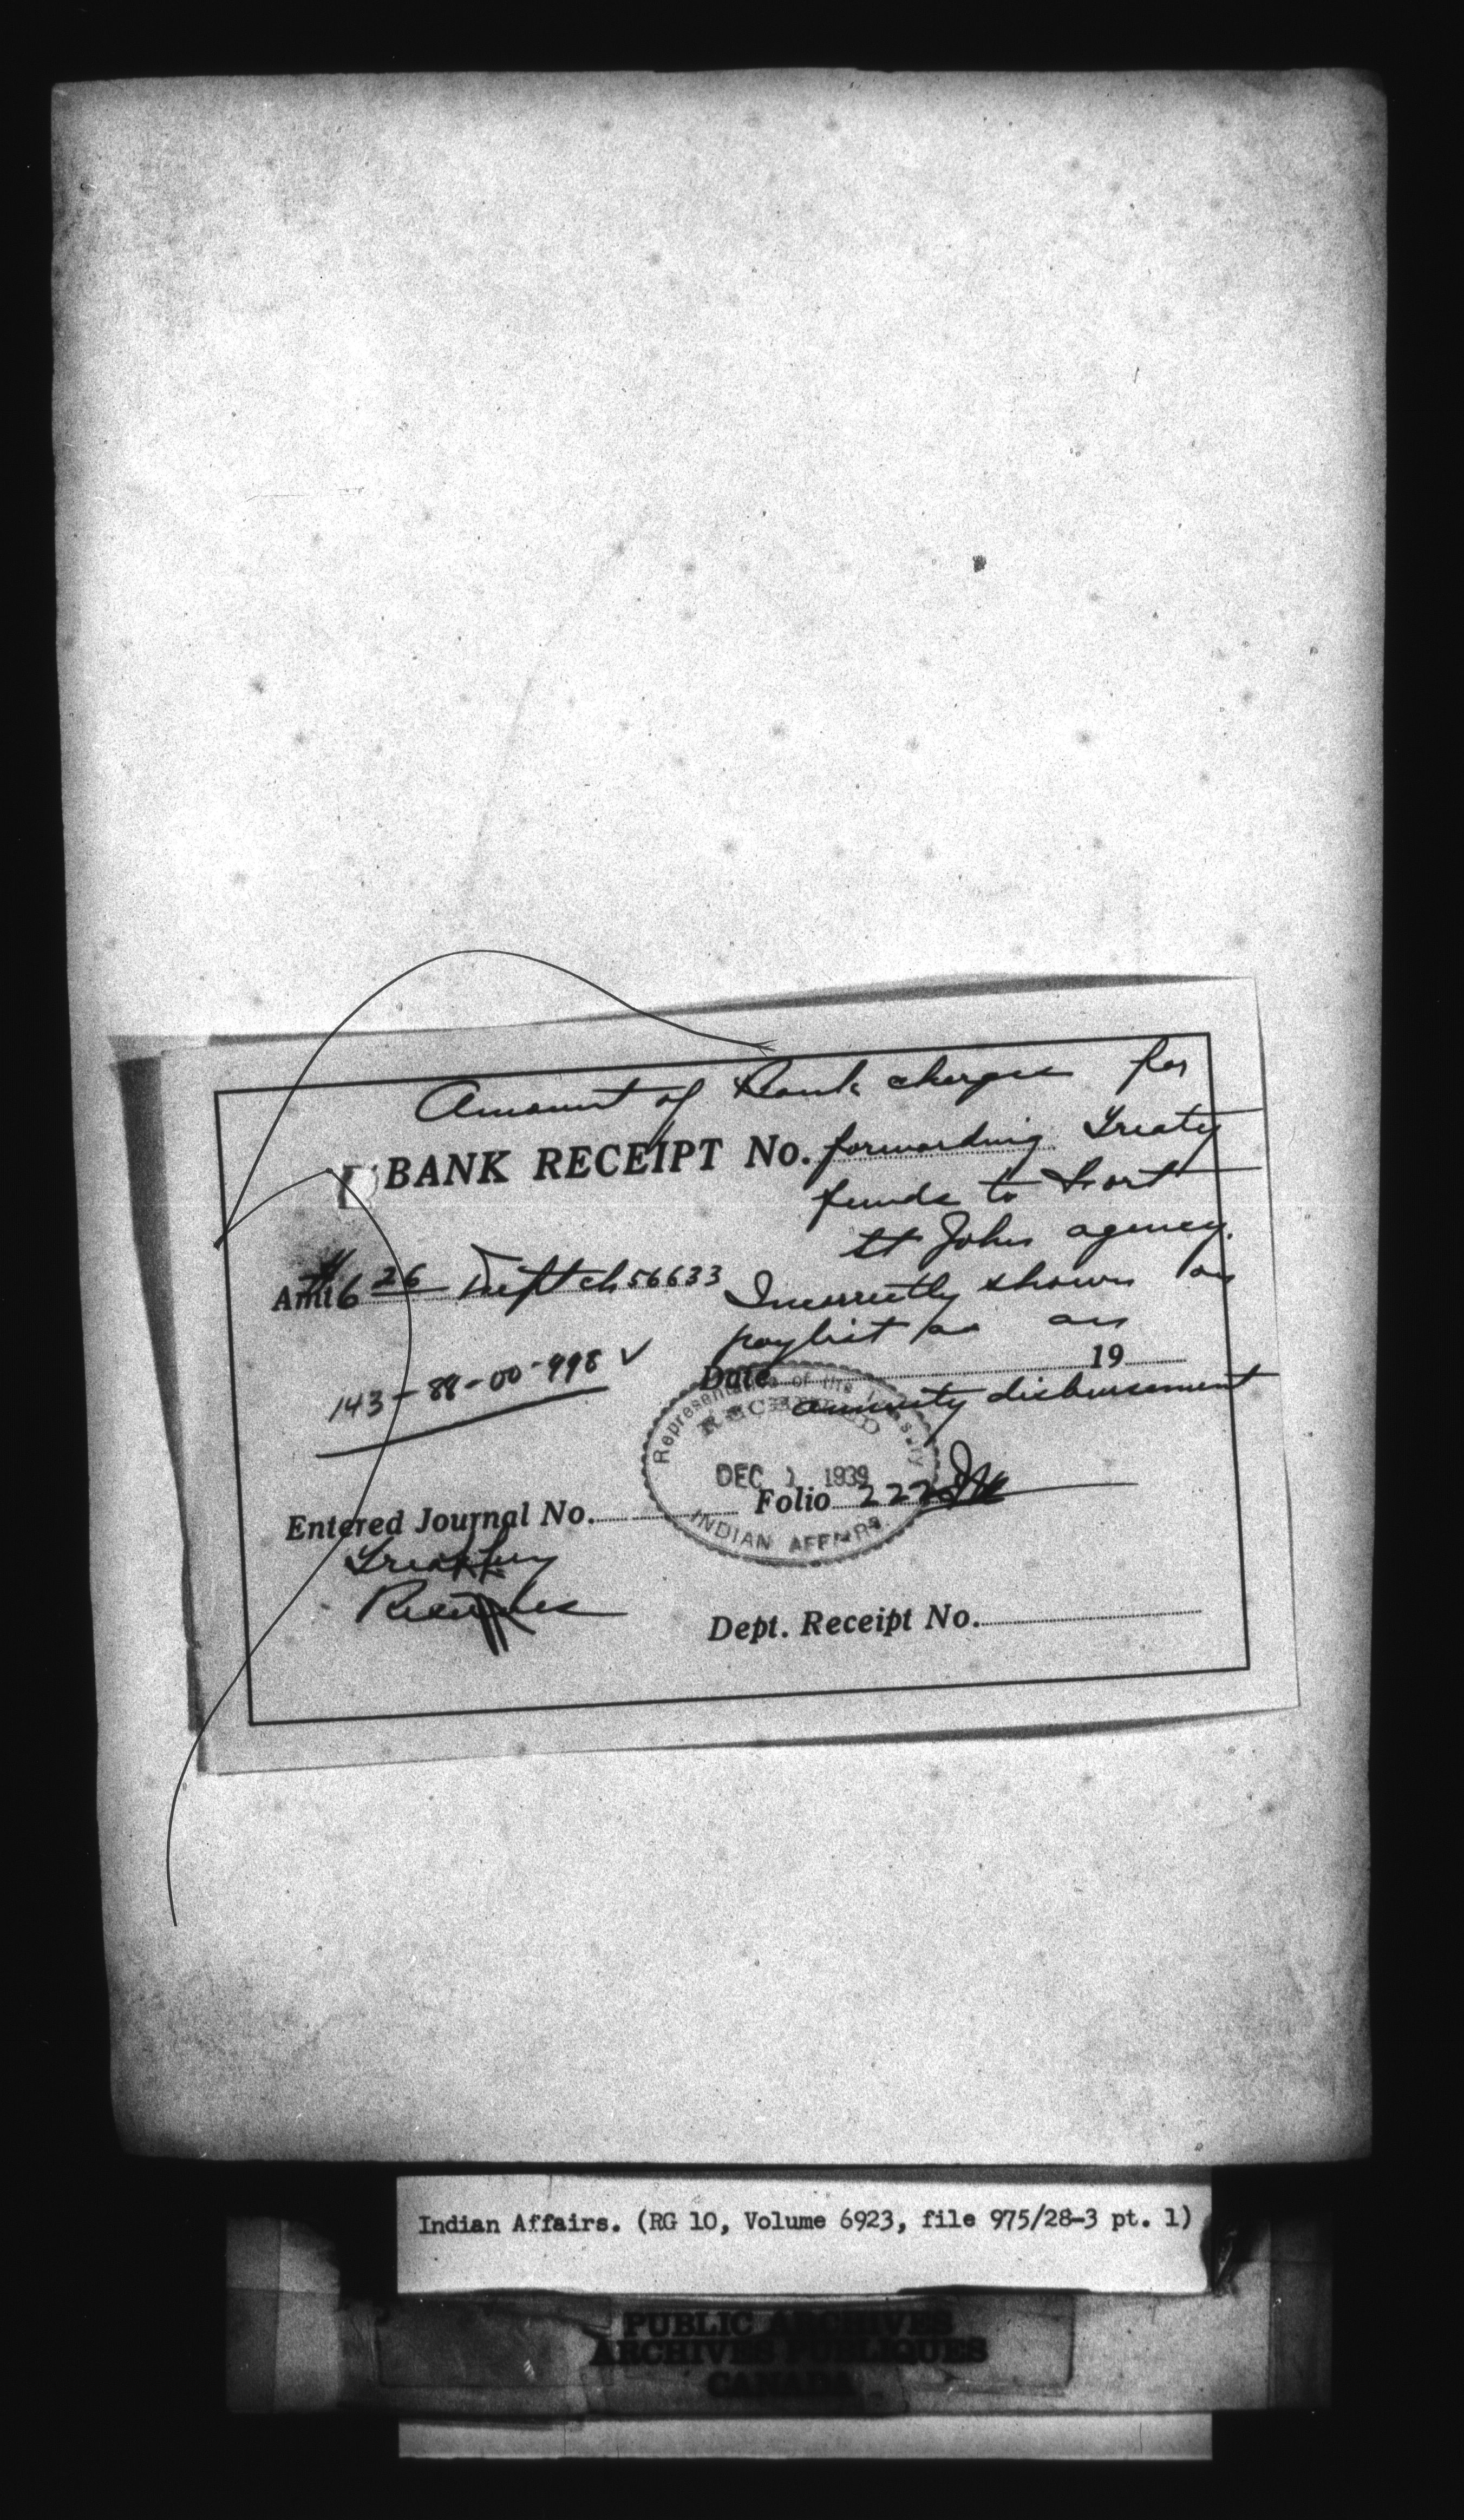 Amount of Bank charges for
BANK RECEIPT No. forwarding Treaty
funds to Fort
St John agency.
Amt $6 26 Dept ch 56633 Incorrectly shown on
paylist as an
143-88-00-998 ✓
Date 19
annuity disbursement
Representative of the Treasury
RECEIVED
DEC 1 1939
INDIAN AFFAIRS.
Entered Journal No. Folio 222
Treasury
Dept. Receipt No.
Indian Affairs. (RG 10, Volume 6923, file 975/28-3 pt. 1)
PUBLIC ARCHIVES
ARCHIVES PUBLIQUES
CANADA